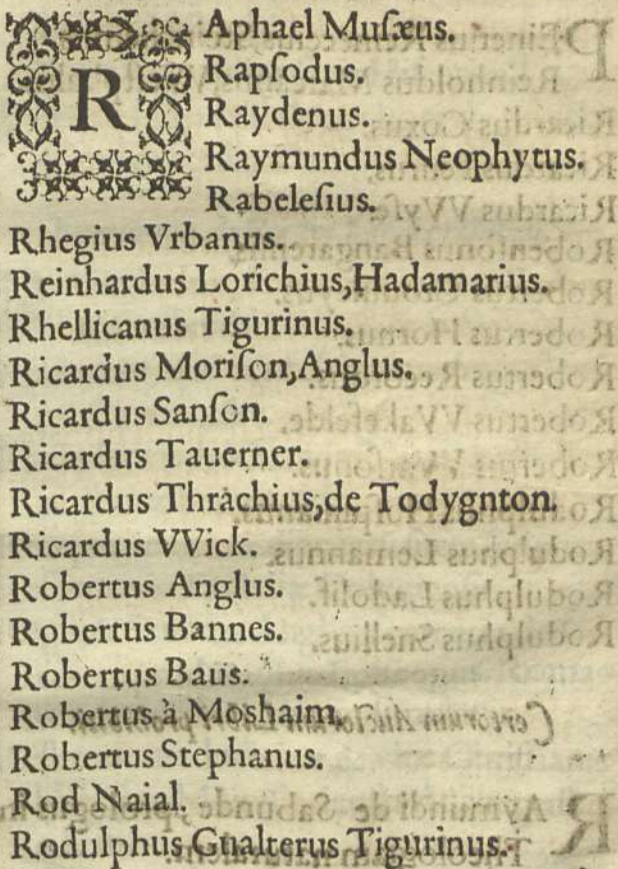 RAphael Muſæus.
Rapſodus.
Raydenus.
Raymundus Neophytus.
Rabeleſius.
Rhegius Vrbanus.
Reinhardus Lorichius,Hadamarius.
Rhellicanus Tigurinus.
Ricardus Moriſon,Anglus.
Ricardus Sanſon.
Ricardus Tauerner.
Ricardus Thràchius,de Todygnton.
Ricardus VVick.
Robertus Anglus.
Robertus Bannes.
Robertus Baus.
Robertus à Moshaim.
Robertus Stephanus.
Rod Naial.
Rodulphus Gualterus Tigurinus.